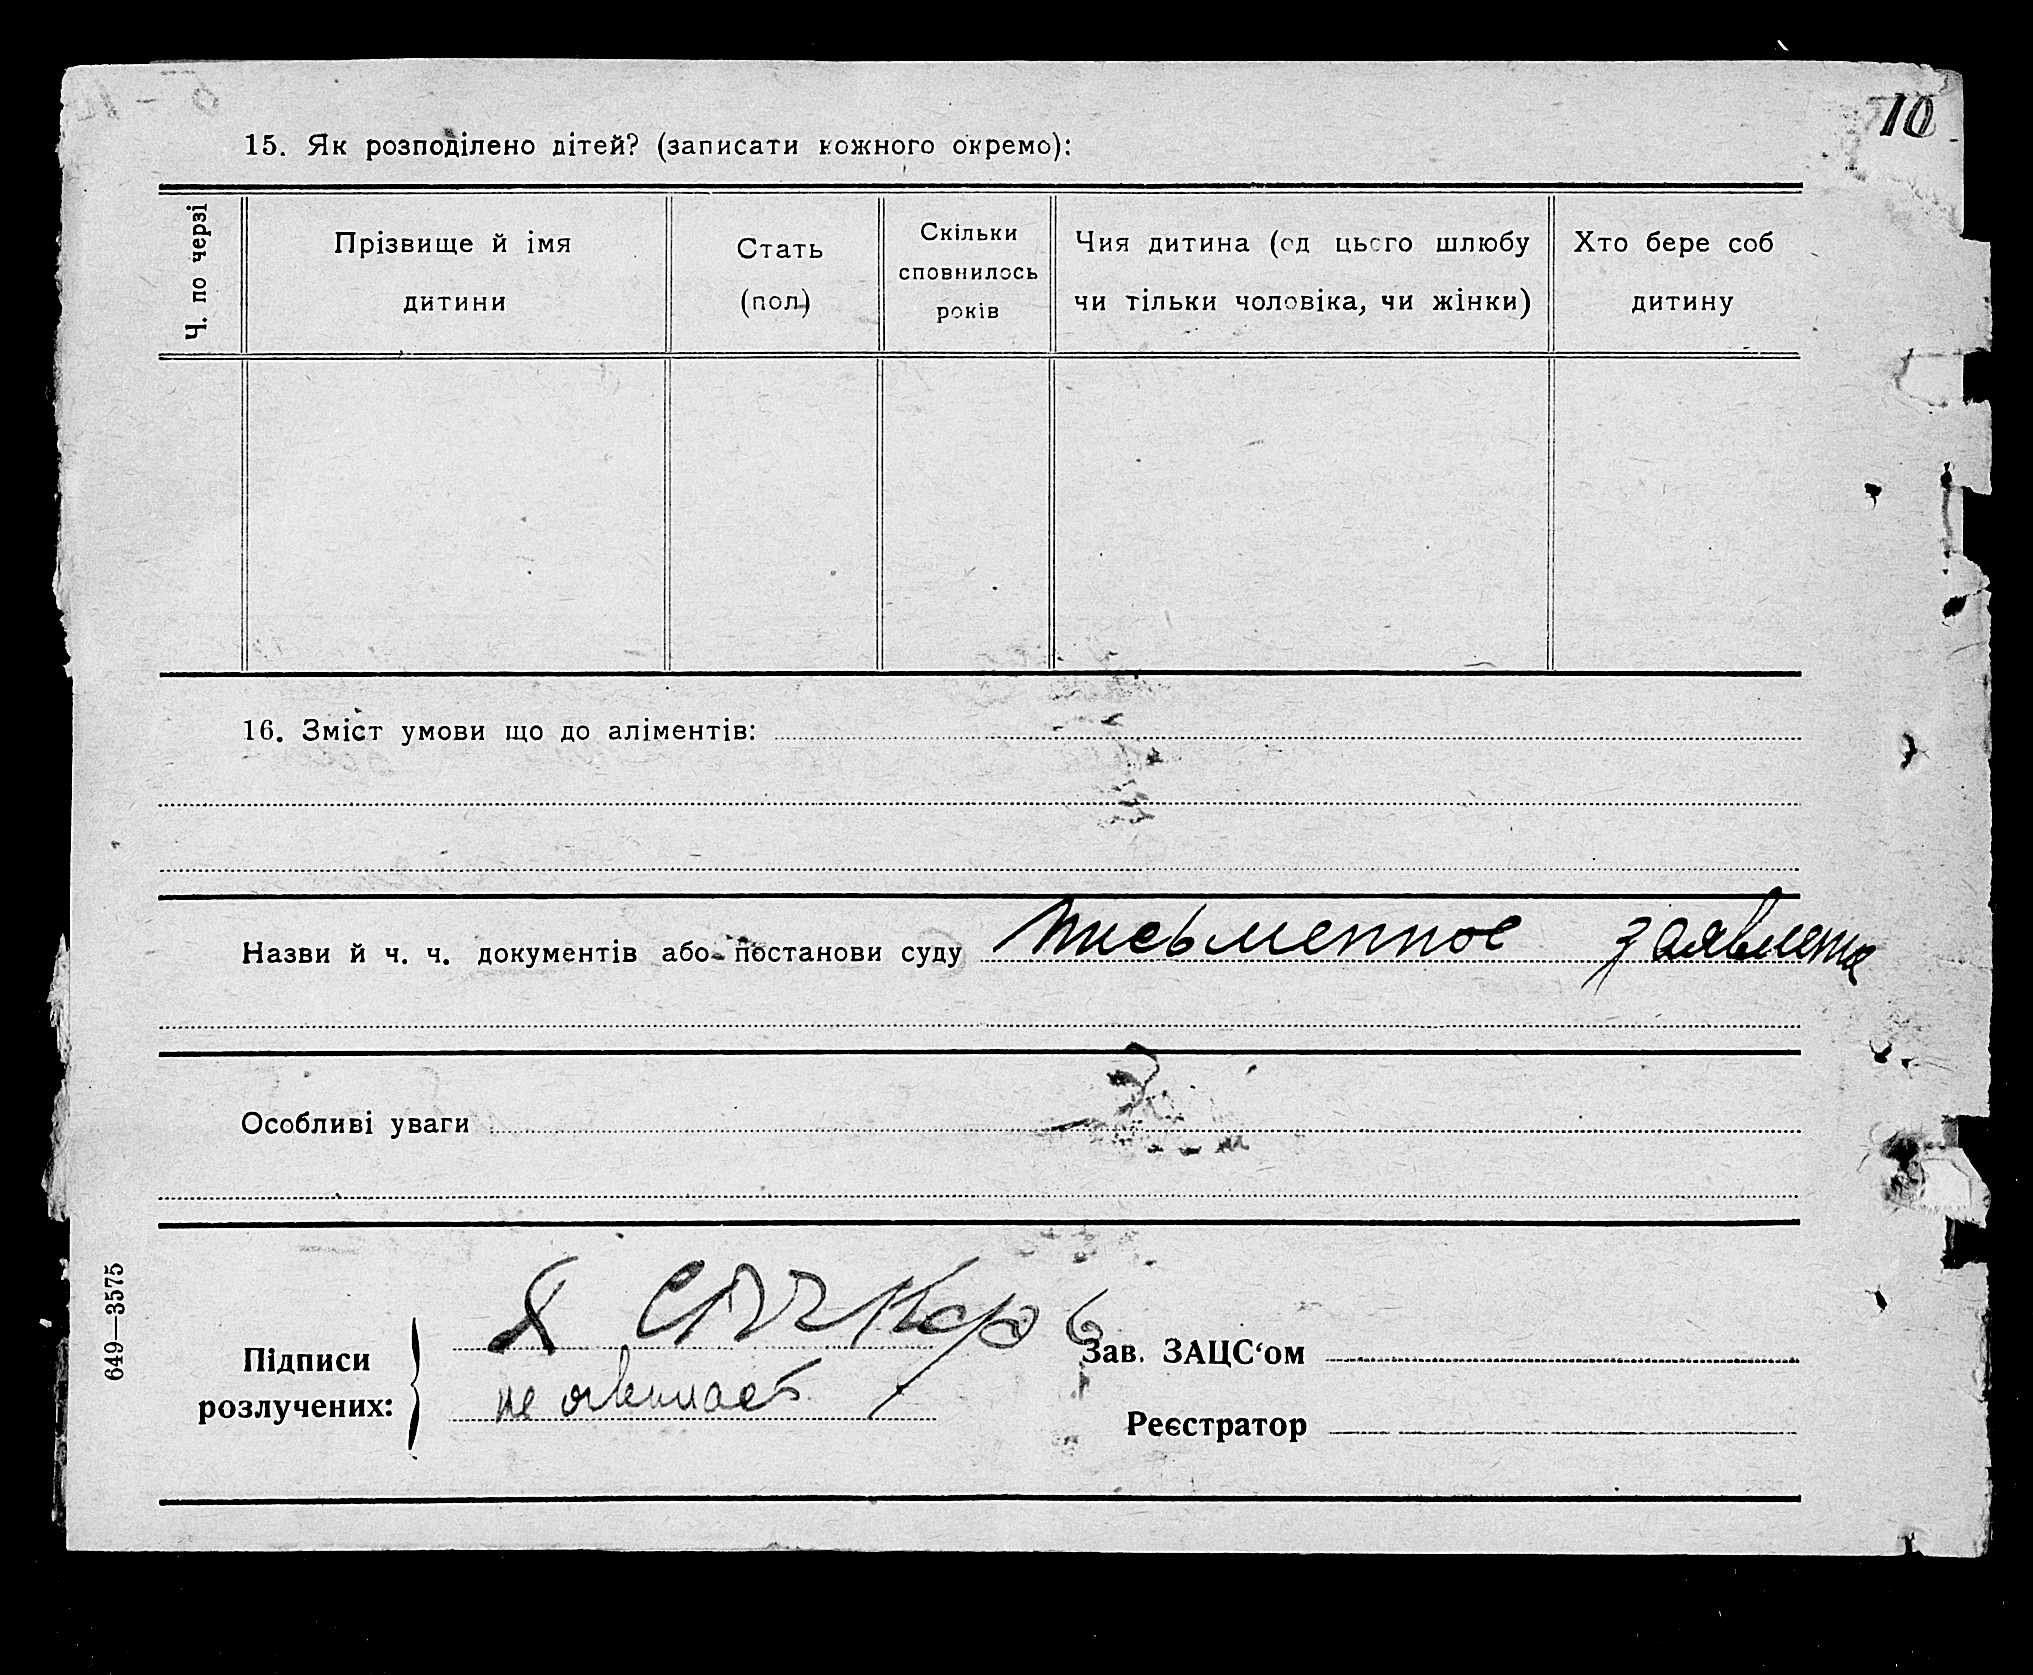 10
15. Як розподілено дітей? (записати кожного окремо):
Ч. по черзі
Прізвище й імя
дитини
Стать
(пол)
Скільки
сповнилось
років
Чия дитина (од цього шлюбу
чи тільки чоловіка, чи жінки)
Хто бере соб
дитину
16. Зміст умови що до аліментів:
Назви й ч. ч. документів або постанови суду письменное заявление
Особливі уваги
649—3575
Підписи
розлучених:
не
Зав. ЗАЦС‘ом
Реєстратор